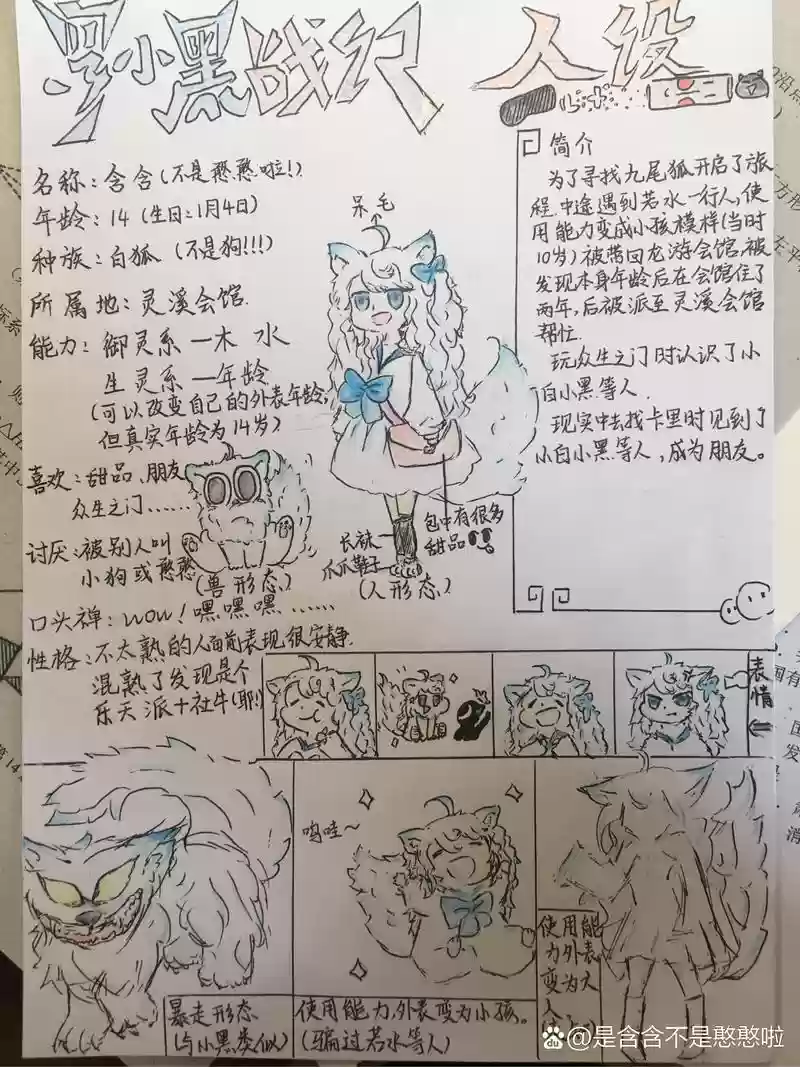 罗小黑战纪 人设
名称：含含(不是憨憨啦!)
年龄：14 (生日：1月4日)
种族：白狐 (不是狗!!!)
所属地：灵溪会馆.
能力：御灵系—木 水
生灵系—年龄
(可以改变自己的外表年龄,
但真实年龄为14岁)
喜欢：甜品、朋友
众生之门……
讨厌：被别人叫
小狗或憨憨
(兽形态)
口头禅：wow! 嘿嘿嘿……
性格：不太熟的人面前表现很安静.
混熟了发现是个
乐天派+社牛(聊)
呆毛
长袜
爪爪鞋子
包中有很多
甜品
(人形态)
简介
为了寻找九尾狐开启了旅
程.中途遇到若水一行人,使
用能力变成小孩模样(当时
10岁)被带回龙游会馆,被
发现本身年龄后在会馆住了
两年,后被派至灵溪会馆
帮忙.
玩众生之门时认识了小
白小黑等人.
现实中去找卡里时见到了
小白小黑等人,成为朋友。
表情
暴走形态
(与小黑类似)
呜哇~
使用能力,外表变为小孩。
(骗过若水等人)
使用能
力外表
变为大
人
@是含含不是憨憨啦